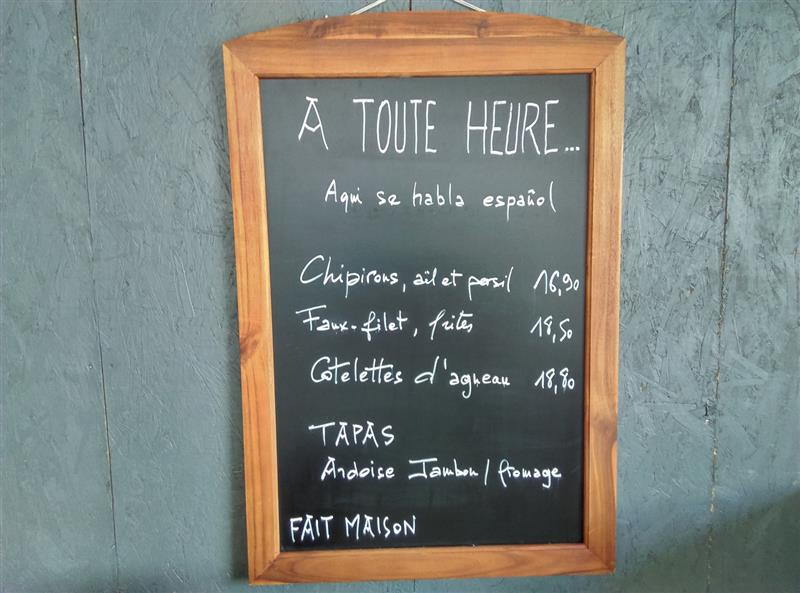 A TOUTE HEURE...
Aqui se habla español
Chipirons, ail et persil 16,90
Faux-filet, frites 18,50
Cotelettes d'agneau 18,80
TAPAS
Ardoise Jambon/fromage
FAIT MAISON